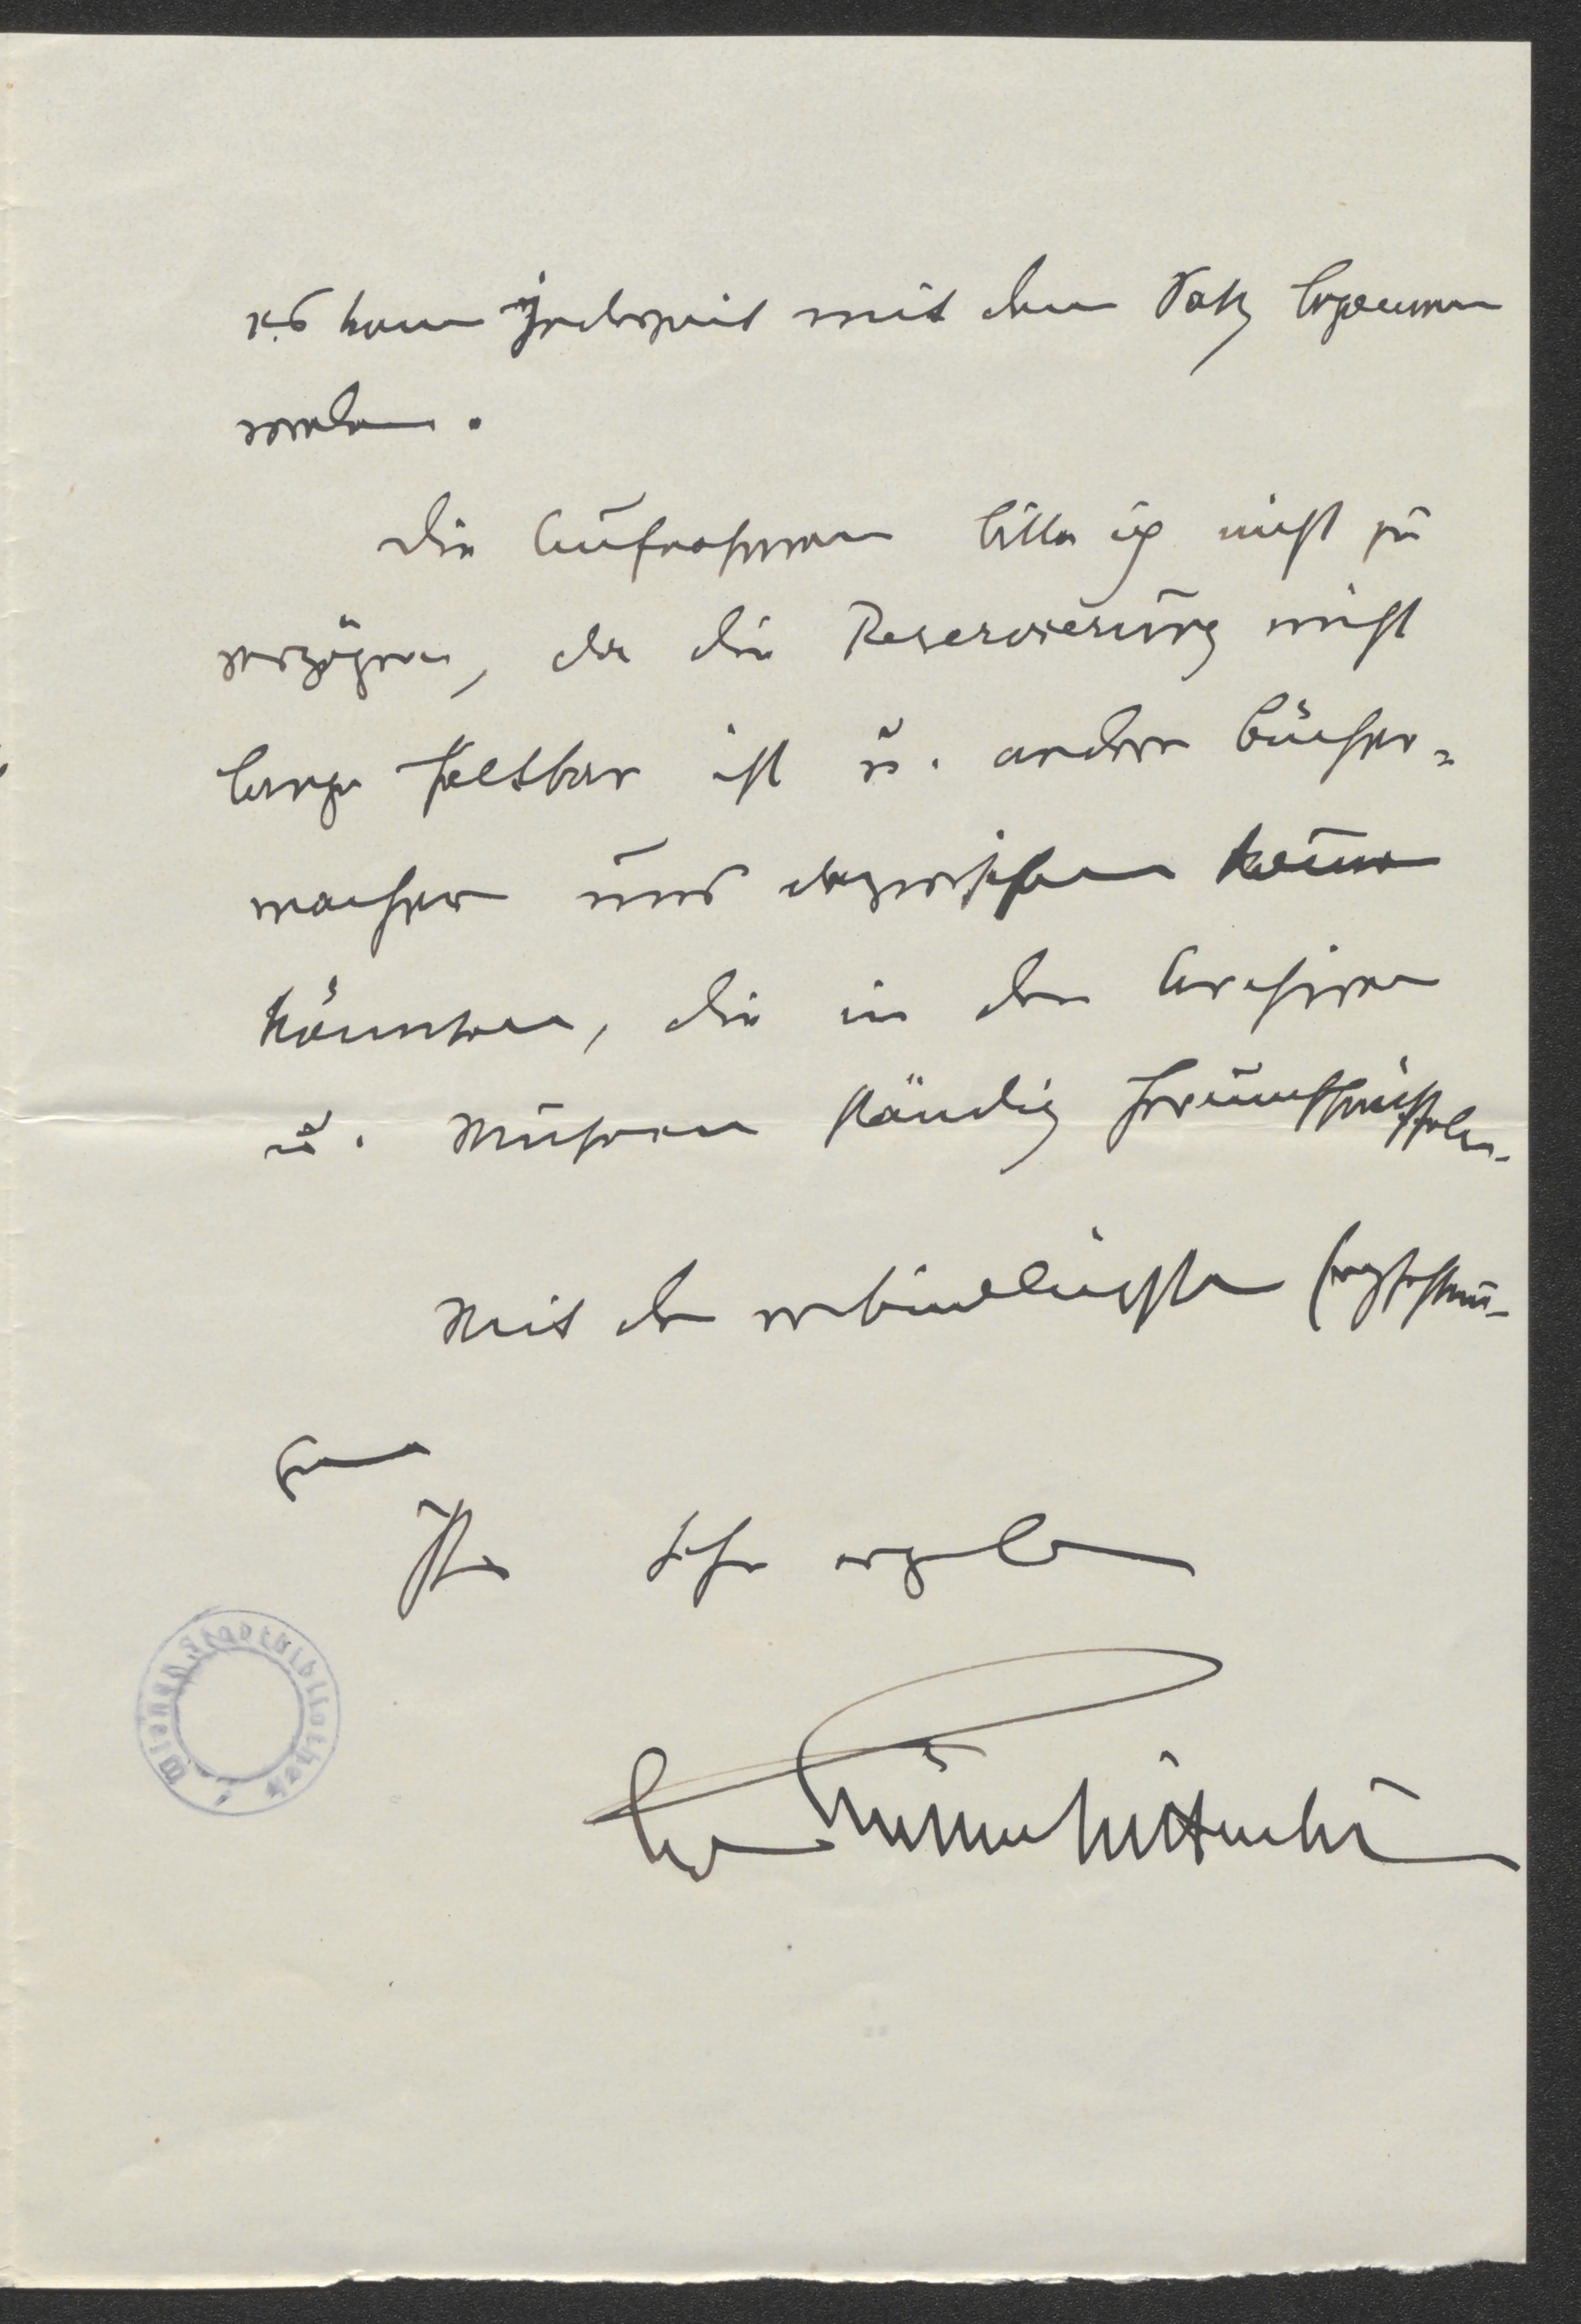 es kann jederzeit mit dem Satz begonnen
werden.
Die Aufnahmen bitte ich nicht zu
verzögern, da die Reservierung nicht
lange haltbar ist u. andere Bücher-
macher uns dazwischen
könnten, die in den Archiven
u. Museen ständig herumschnüffeln.
Mit den verbindlichsten Empfehlun-
gen
Ihr sehr ergebener
Wiener Stadtbibliothek